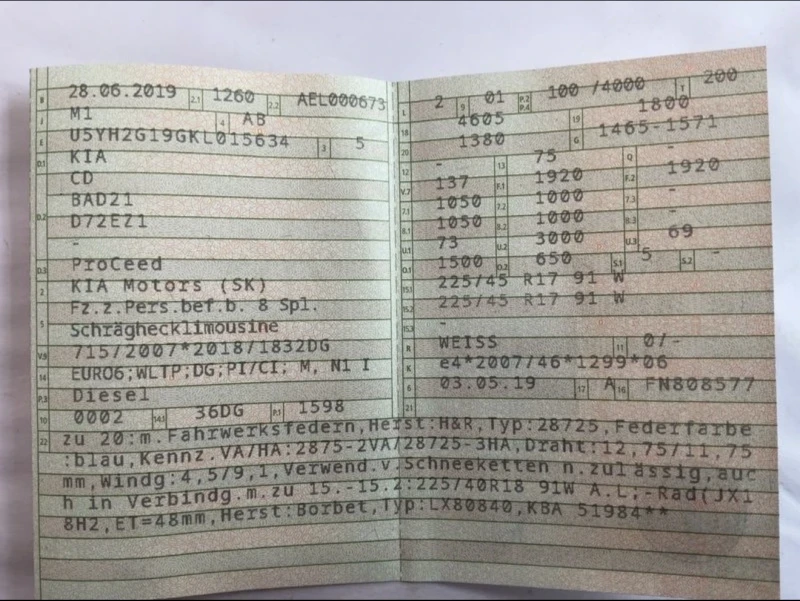 B 28.06.2019 2.1 1260 2.2 AEL000673
J M1 4 AB
E U5YH2G19GKL015634 3 5
D.1 KIA
CD
D.2 BAD21
D72EZ1
-
D.3 ProCeed
2 KIA Motors (SK)
5 Fz.z.Pers.bef.b. 8 Spl.
Schräghecklimousine
V.9 715/2007*2018/1832DG
14 EURO6;WLTP;DG;PI/CI; M, N1 I
P.3 Diesel
10 0002 14.1 36DG P.1 1598
L 2 9 01 P.2 P.4 100 /4000 T 200
18 4605 19 1800
20 1380 G 1465-1571
12 - 13 75 Q -
V.7 137 F.1 1920 F.2 1920
7.1 1050 7.2 1000 7.3 -
8.1 1050 8.2 1000 8.3 -
U.1 73 U.2 3000 U.3 69
O.1 1500 O.2 650 S.1 5 S.2 -
15.1 225/45 R17 91 W
15.2 225/45 R17 91 W
15.3 -
R WEISS 11 0/-
K e4*2007/46*1299*06
6 03.05.19 17 A 16 FN808577
21
22 zu 20:m.Fahrwerksfedern,Herst:H&R,Typ:28725,Federfarbe
:blau,Kennz.VA/HA:2875-2VA/28725-3HA,Draht:12,75/11,75
mm,Windg:4,5/9,1,Verwend.v.Schneeketten n.zulässig,auc
h in Verbindg.m.zu 15.-15.2:225/40R18 91W A.L;-Rad(JX1
8H2,ET=48mm,Herst:Borbet,Typ:LX80840,KBA 51984**